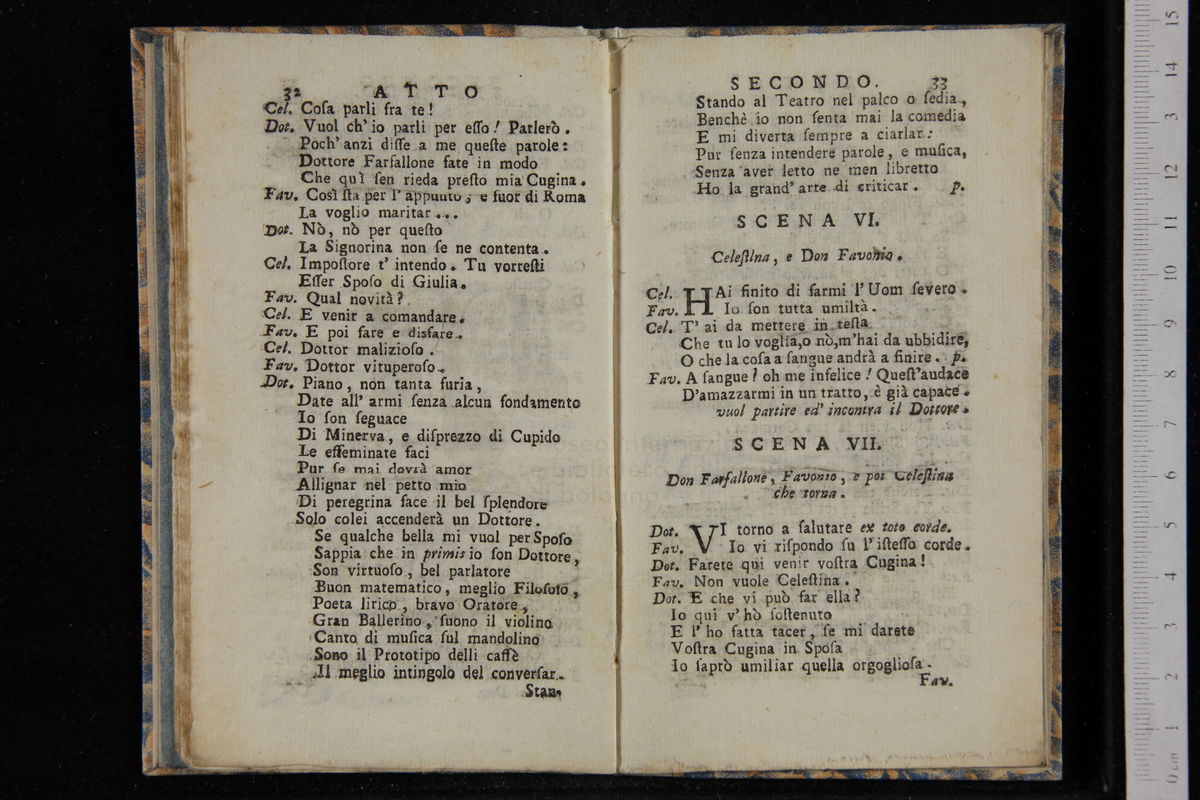 32 ATTO
Cel. Coſa parli fra te!
Dot. Vuol ch' io parli per eſſo! Parlerò.
Poch' anzi diſſe a me queſte parole:
Dottore Farfallone fate in modo
Che quì ſen rieda preſto mia Cugina.
Fav. Così ſta per l' appunto, e fuor di Roma
La voglio maritar...
Dot. Nò, nò per queſto
La Signorina non ſe ne contenta.
Cel. Impoſtore t' intendo. Tu vorreſti
Eſſer Spoſo di Giulia.
Fav. Qual novità?
Cel. E venir a comandare.
Fav. E poi fare e disfare.
Cel. Dottor malizioſo.
Fav. Dottor vituperoſo.
Dot. Piano, non tanta furia,
Date all' armi ſenza alcun fondamento
Io ſon ſeguace
Di Minerva, e diſprezzo di Cupido
Le effeminate faci
Pur ſe mai dovrà amor
Allignar nel petto mio
Di peregrina face il bel ſplendore
Solo colei accenderà un Dottore.
Se qualche bella mi vuol per Spoſo
Sappia che in primis io ſon Dottore,
Son virtuoſo, bel parlatore
Buon matematico, meglio Filoſofo,
Poeta lirico, bravo Oratore,
Gran Ballerino, ſuono il violino
Canto di muſica ſul mandolino
Sono il Prototipo delli caffè
Il meglio intingolo del converſar.
Stan-
SECONDO. 33
Stando al Teatro nel palco o ſedia,
Benchè io non ſenta mai la comedia
E mi diverta ſempre a ciarlar:
Pur ſenza intendere parole, e muſica,
Senza aver letto ne men libretto
Ho la grand' arte di criticar. p.
SCENA VI.
Celeſtina, e Don Favonio.
Cel. HAi finito di farmi l' Uom ſevero.
Fav. Io ſon tutta umiltà.
Cel. T' ai da mettere in teſta
Che tu lo voglia, o nò, m'hai da ubbidire,
O che la coſa a ſangue andrà a finire. p.
Fav. A ſangue? oh me infelice! Queſt'audace
D'amazzarmi in un tratto, è già capace.
vuol partire ed' incontra il Dottore.
SCENA VII.
Don Farfallone, Favonio, e poi Celeſtina
che torna.
Dot. VI torno a ſalutare ex toto corde.
Fav. Io vi riſpondo ſu l' iſteſſo corde.
Dot. Farete qui venir voſtra Cugina!
Fav. Non vuole Celeſtina.
Dot. E che vi può far ella?
Io qui v' hò ſoſtenuto
E l' ho fatta tacer, ſe mi darete
Voſtra Cugina in Spoſa
Io ſaprò umiliar quella orgoglioſa.
Fav.